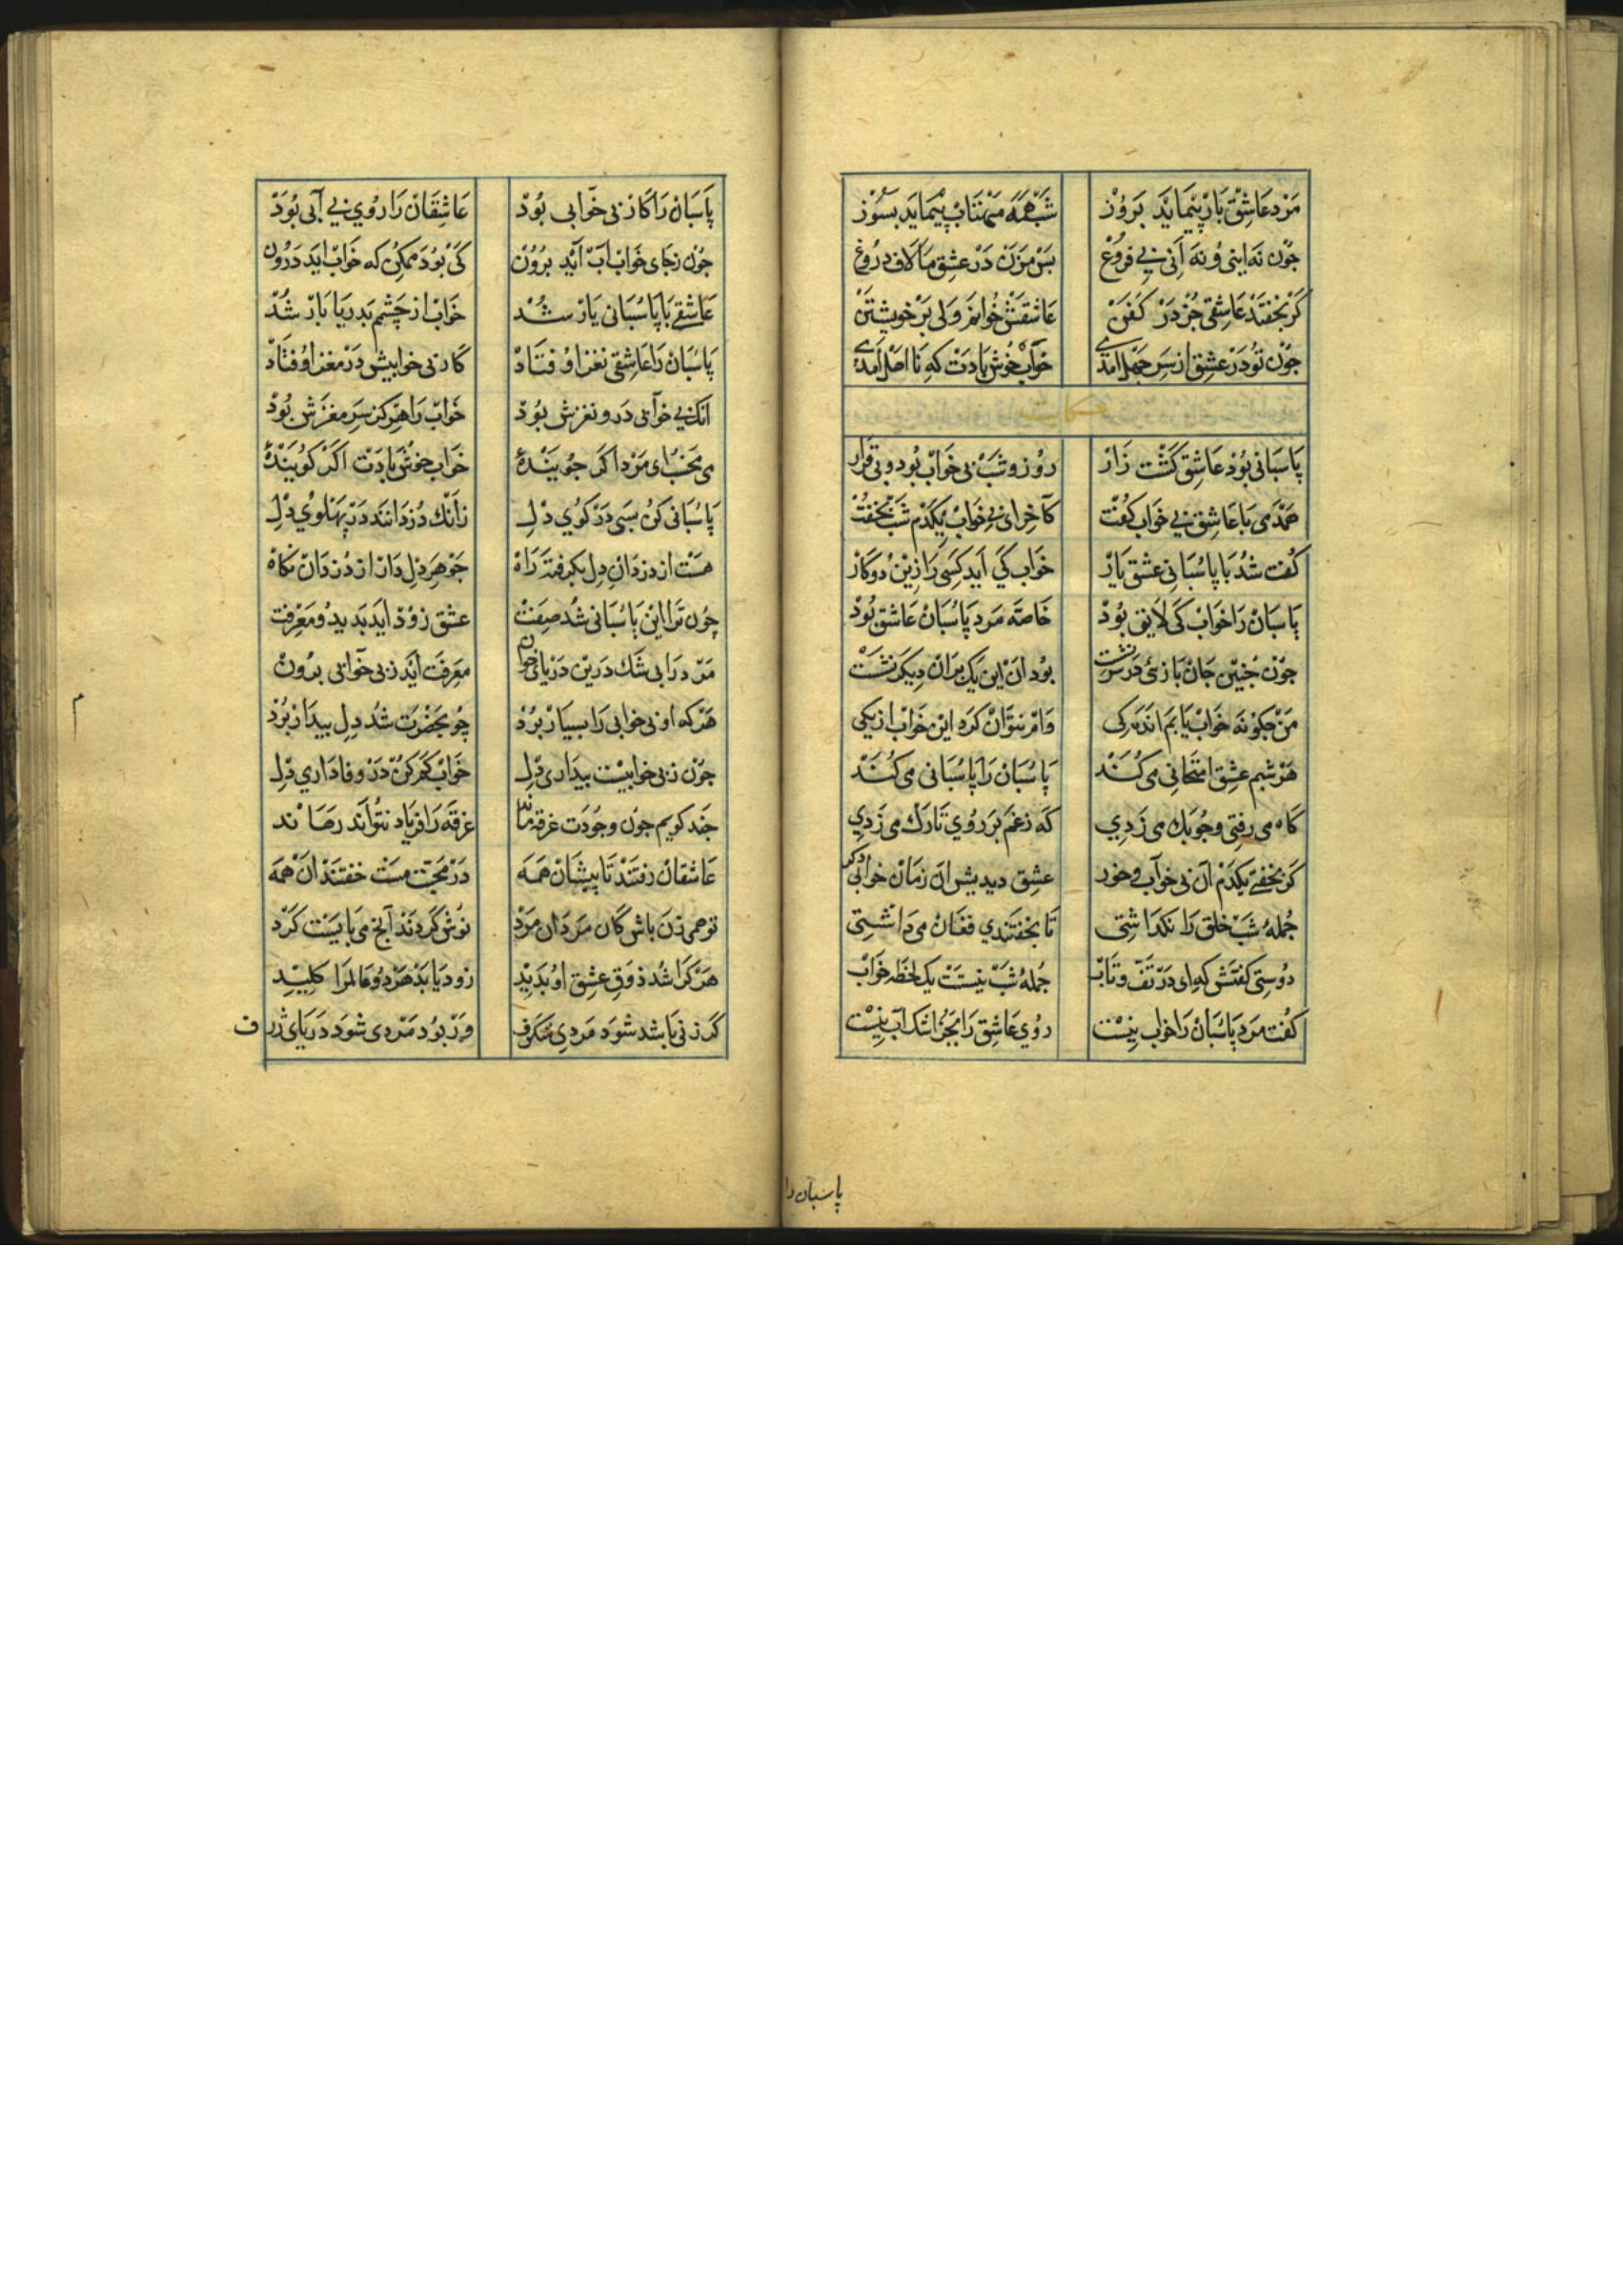 مرد عاشق باز پیماید بروز شب همه مهتاب پیماید بسوز
چون نه اینی و نه آنی بی فروغ بس مزن در عشق ما لاف دروغ
کر بخفتد عاشقی جز در کفن عاشقش خوانم ولی بر خویشتن
چون تو در عشق از سر جهل آمدی خواب خوش بادت که نا اهل آمدی
حکایت
پاسبانی بود عاشق کشت زار روز و شب بی خواب بود و بی قرار
همدمی با عاشق بی خواب کفت کآخر ای بی خواب یکدم شب بخفت
کفت شد با پاسبانی عشق یار خواب کی آید کسی را زین دو کار
پاسبان را خواب کی لایق بود خاصه مرد پاسبان عاشق بود
چون چنین جان بازئی در سر نشست بود آن این یک بران دیکر نشست
من چکونه خواب یابم اندکی وام نتوان کرد این خواب از یکی
هر شبم عشق امتحانی می کند پاسبان را پاسبانی می کند
کاه می رفتی و چوبک می زدی که زغم بر روی تارک می زدی
کر بخفتی یکدم آن بی خواب و خور عشق دیدیش آن زمان خوابی دکر
جمله شب خلق را نکداشتی تا بخفتندی فغان می داشتی
دوستی کفتش که ای در تف و تاب جمله شب نیستت یک لحظه خواب
کفت مرد پاسبان را خواب نیست روی عاشق را بجز اشک آب نیست
پاسبان را
پاسبان را کار بی خوابی بود عاشقان را روی بی آبی بود
چون زجای خواب آب آید برون کی بود ممکن که خواب اید درون
عاشقی با پاسبانی یار شد خواب از چشم بدریا بار شد
پاسبان را عاشقی نغز اوفتاد کار بی خوابیش در مغز اوفتاد
آنک بی خوابی درو نغزش بود خواب را هرکز سر مغزش بود
می مخسب ای مرد اکر جویندۀ خواب خوش بادت اکر کویندۀ
پاسبانی کن بسی در کوی دل زانک دزدانند در پهلوی دل
هست از دزدان دل بکرفته راه جوهر دل دار از دزدان نکاه
چون ترا این پاسبانی شد صفت عشق زود اید بدید و معرفت
مرد را بی شک درین دریای خون معرفت آید زبی خوابی برون
هرکه او بی خوابی را بسیار برد چو بحضرت شد دل بیدار برد
چون زبی خوابیست بیداری دل خواب کم کن در وفاداری دل
چند کویم چون وجودت غرقه ماند غرقه را فریاد نتواند رهاند
عاشقان رفتند تا پیشان همه در محبت مست خفتند آن همه
تو همی زن باش کان مردان مرد نوش کردند آنچ می بایست کرد
هر کرا شد ذوق عشق او بدید زود یابد هر دو عالم را کلید
کر زنی باشد شود مردی شکرف ور بود مردی شود دریای ژرف
م